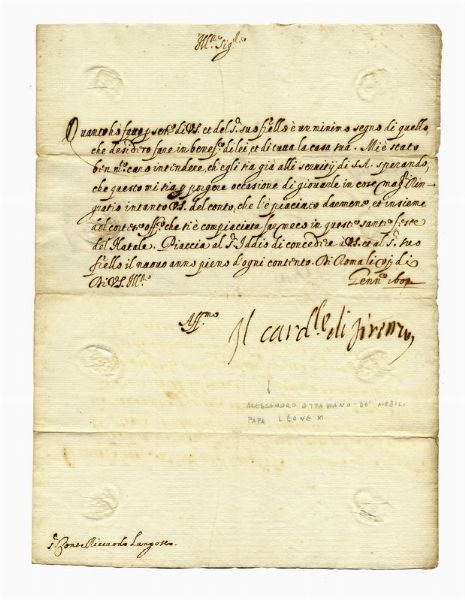 Ill.re Sig.re
Quanto ho fatto p ser.o di V.S. et del S.r suo fr̃ello è un minimo segno di quello
che desidero fare in benef.o di lei et di tutta la casa sua. Mi è stato
ben m.to caro intendere, ch'egli sia già alli servitij di S.A. sperando,
che questo mi sia p porgere occasione di giovarle in cose mag.ri Rin-
gratio intanto V.S. del conto, che l'è piaciuto darmene, et insieme
del cortese off.o che si è compiaciuta far meco in queste sante feste
del Natale. Piaccia al S.r Iddio di concedere à V.S. et al S.r suo
fr̃ello il nuovo anno pieno d'ogni contento. Di Roma li di
Di V.S. Ill.re Genn.o
Aff.mo
Il card.le di firenze
ALESSANDRO OTTAVIANO DE' MEDICI
PAPA LEONE XI
S.r Conte Riccardo Langosco.